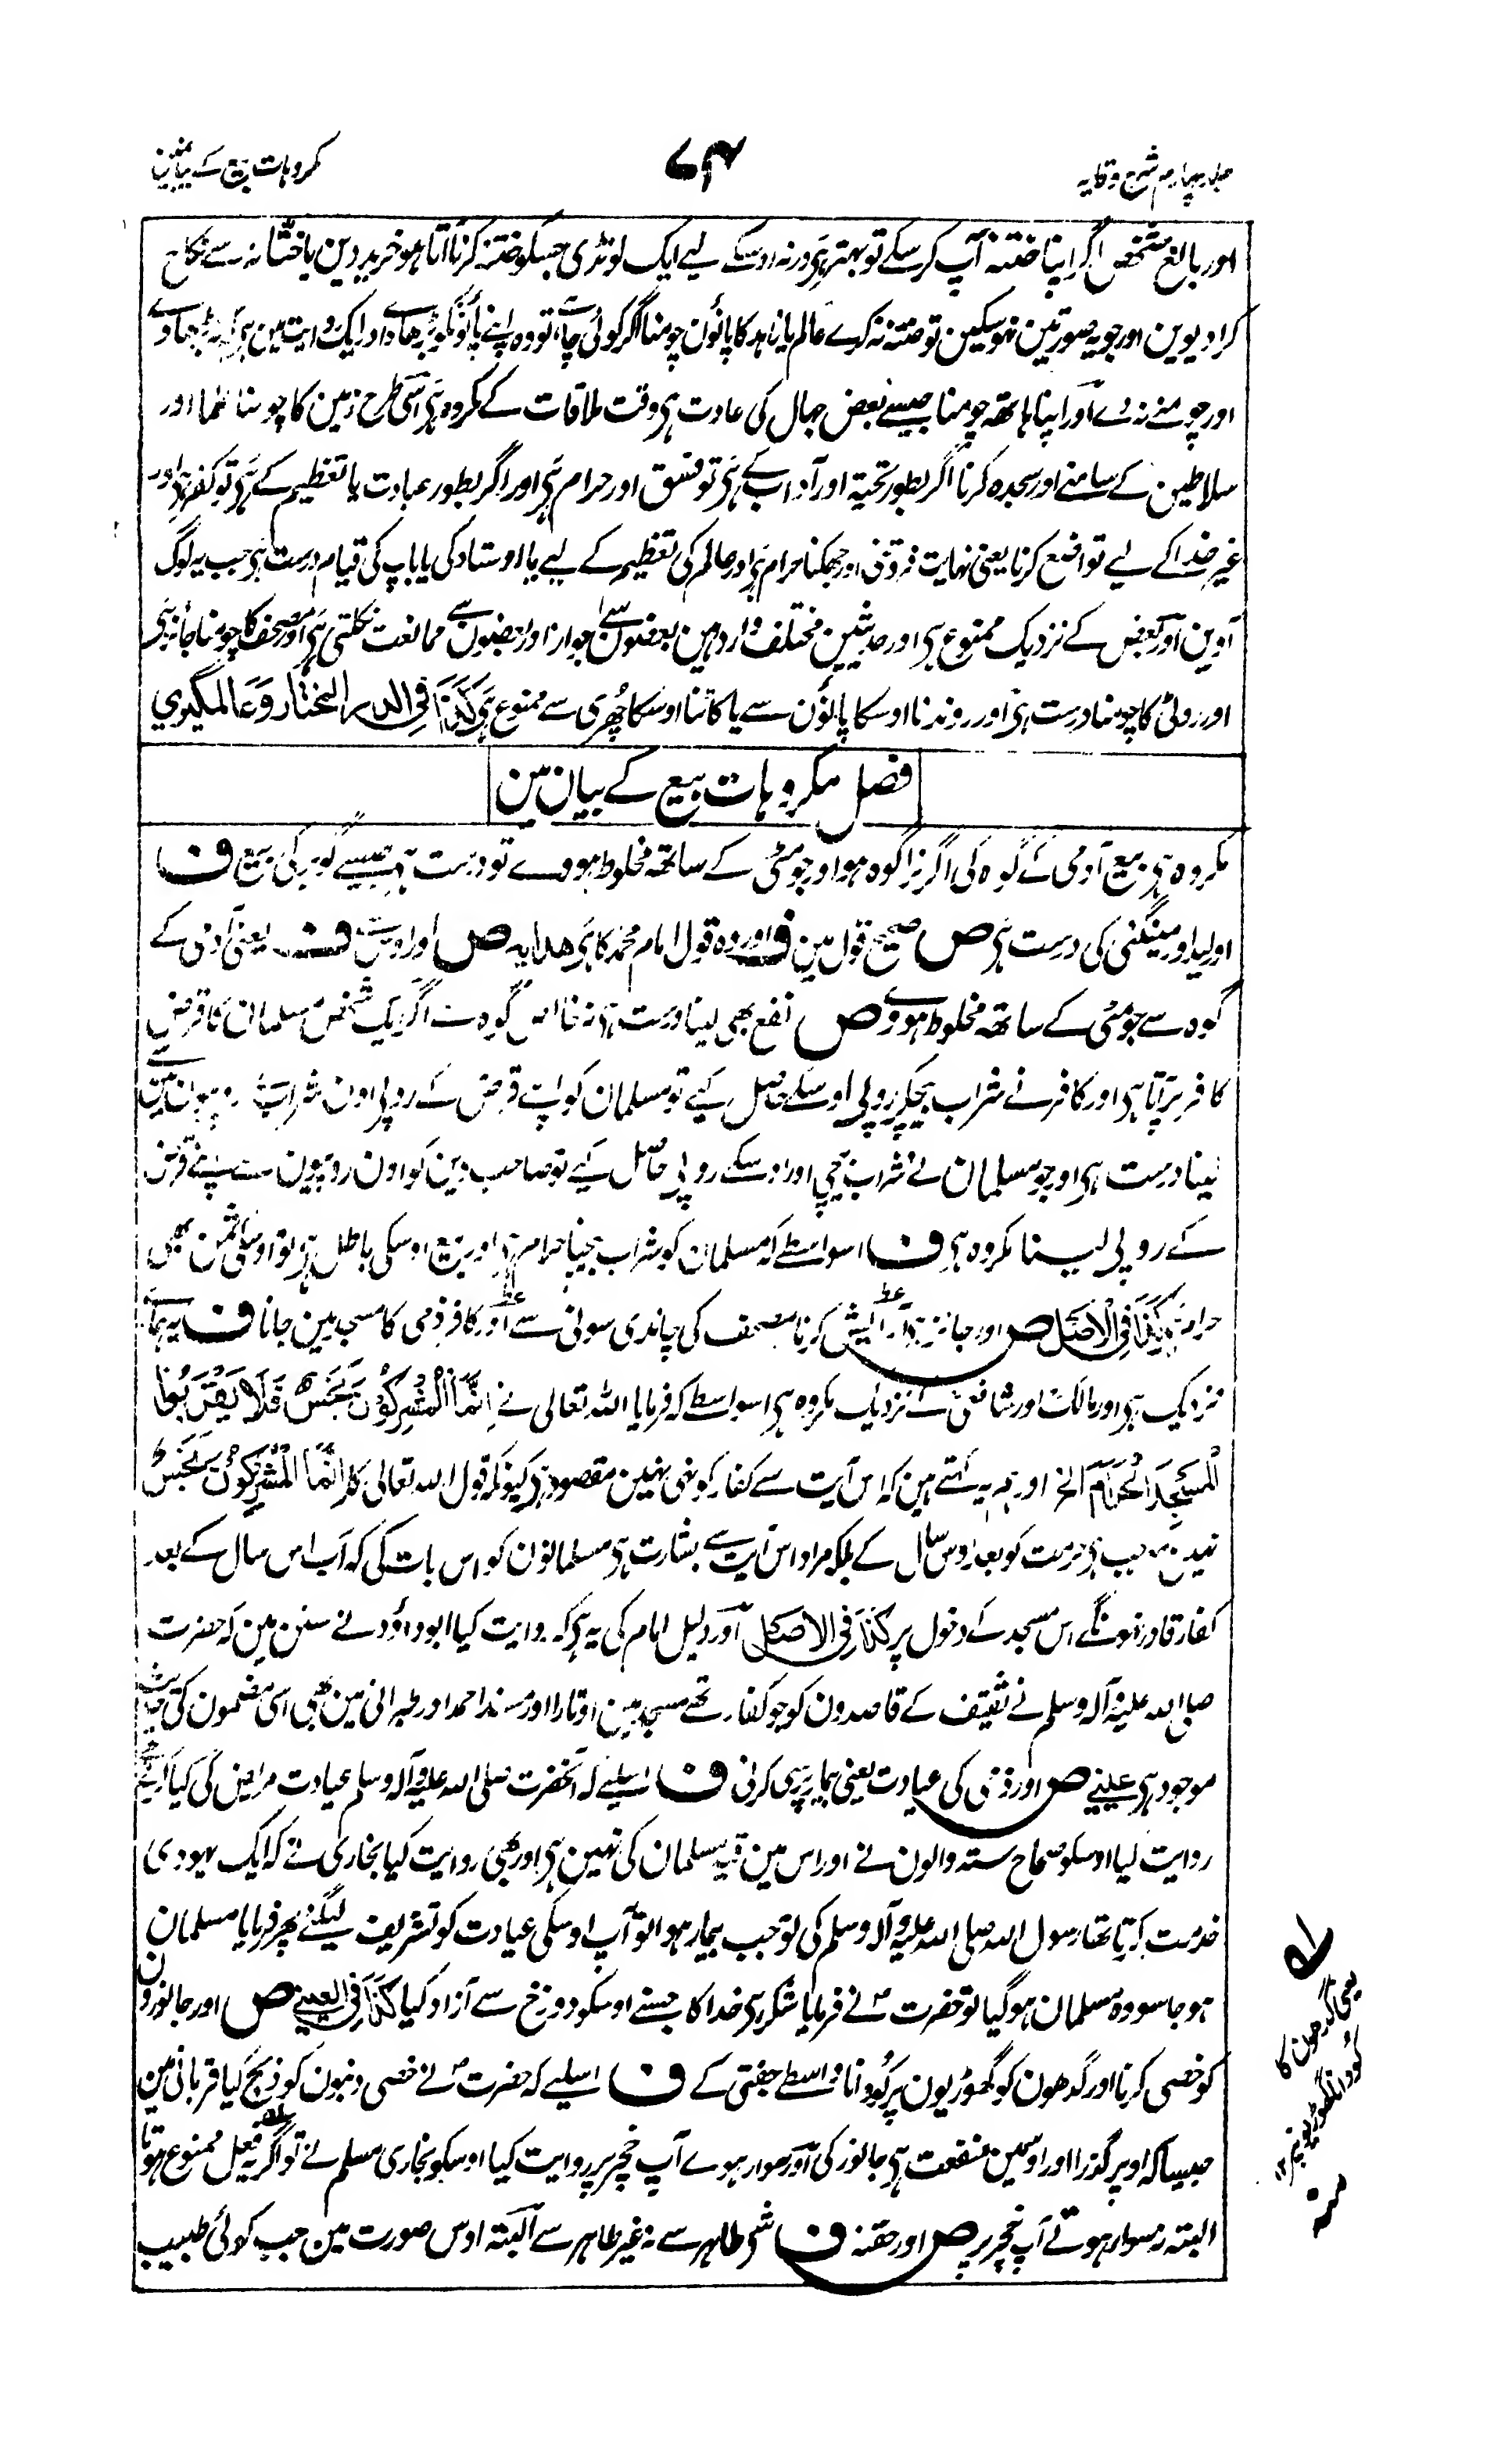 جلد چہارم شرح وقایہ
۷۴
مکروہات بیع کے بیان مین
اور بالغ شخص اگر اپنا ختنہ آپ کر سکے تو بہتر ہی ورنہ اوسکے لیے ایک لونڈی جسکو ختنہ کرنا آتا ہو خرید دین یا ختانہ سے نکاح
کرا دیوین اور جو یہ صورتین نہوسکین تو ختنہ نہ کرے عالم یا زاہد کا پانؤن چومنا اگر کوئی چاہے تو وہ اپنے پانؤنکو بڑھاوے اور ایک روایت مین ہی کہ نہ بڑھاوے
اور چومنے نہ دے اور اپنا ہاتھ چومنا جیسے بعض جہال کی عادت ہی وقت ملاقات کے مکروہ ہی اسی طرح زمین کا چومنا علما اور
سلاطین کے سامنے اور سجدہ کرنا اگر بطور تحیۃ اور آداب کے ہی تو فسق اور حرام ہی اور اگر بطور عبادت یا تعظیم کے ہی تو کفر ہی اور
غیر خدا کے لیے تواضع کرنا یعنی نہایت فروتنی اور جھکنا حرام ہی اور عالم کی تعظیم کے لیے یا اوستاد کی یا باپ کی قیام درست ہی جب یہ لوگ
آوین اور بعض کے نزدیک ممنوع ہی اور حدیثین مختلف وارد ہین بعضون سے جواز اور بعضون سے ممانعت نکلتی ہی اور مصحف کا چومنا جائز ہی
اور روٹی کا چومنا درست ہی اور روندنا اوسکا پانؤن سے یا کاٹنا اوسکا چھری سے ممنوع ہی کذا فی الدر المختار وعالمگیری
فصل مکروہات بیع کے بیان مین
مکروہ ہی بیع آدمی کے گوہ کی اگر نرا گوہ ہو اور جو مٹی کے ساتھ مخلوط ہووے تو درست ہی جیسے گوبر کی بیع ف
اور لید اور مینگنی کی درست ہی ص صحیح قول مین ف اور وہ قول امام محمد کا ہی ھدایہ ص اور اوس ف یعنی آدمی کے
گوہ سے جو مٹی کے ساتھ مخلوط ہووے ص نفع بھی لینا درست ہی نہ خالص گوہ سے اگر ایک شخص مسلمان کا قرض
کافر پر آتا ہی اور کافر نے شراب بیچکر روپی اوسکے حاصل کیے تو مسلمان کو اپنے قرض کے روپی اون شراب کے روپیون مین سے
لینا درست ہی اور جو مسلمان نے شراب بیچی اور اوسکے روپی حاصل کیے تو صاحب دین کو اون روپیون سے اپنے قرض
کے روپی لینا مکروہ ہی ف اسواسطے کہ مسلمان کو شراب بیچنا حرام ہی اور بیع اوسکی باطل ہی تو اوسکی ثمن بھی
حرام ہی کذا فی الاصل ص اور جائز ہی آرایش کرنا مصحف کی چاندی سونی سے اور کافر ذمی کا مسجد مین جانا ف یہ ہمارے
نزدیک ہی اور مالکؒ اور شافعیؒ کے نزدیک مکروہ ہی اسواسطے کہ فرمایا اللہ تعالی نے اِنَّمَا الْمُشْرِکُوْنَ نَجَسٌ فَلَا یَقْرَبُوا
الْمَسْجِدَ الْحَرَامَ الخ اور ہم یہ کہتے ہین کہ اس آیت سے کفار کو نہی نہین مقصود ہی کیونکہ قول اللہ تعالی کا اِنَّمَا الْمُشْرِکُوْنَ نَجَسٌ
نہین موجب ہی حرمت کو بعد اوس سال کے بلکہ مراد اس آیت سے بشارت ہی مسلمانون کو اس بات کی کہ اب اس سال کے بعد
کفار قادر نہونگے اس مسجد کے دخول پر کذا فی الاصل اور دلیل امام کی یہ ہی کہ روایت کیا ابو داؤد نے سنن مین کہ حضرت
صلی اللہ علیہ وآلہ وسلم نے ثقیف کے قاصدون کو جو کفار تھے مسجد مین اوتارا اور مسند احمد اور طبرانی مین بھی اسی مضمون کی حدیث
موجود ہی عینی ص اور ذمی کی عیادت یعنی بیمار پرسی کرنی ف اسلیے کہ آنحضرت صلی اللہ علیہ وآلہ وسلم عیادت مریض کی کیا کرتے تھے
روایت کیا اوسکو صحاح ستہ والون نے اور اس مین قید مسلمان کی نہین ہی اور بھی روایت کیا بخاری نے کہ ایک یہودی
خدمت کرتا تھا رسول اللہ صلی اللہ علیہ وآلہ وسلم کی تو جب بیمار ہوا تو آپ اوسکی عیادت کو تشریف لیگئے پھر فرمایا مسلمان
ہو جا سو وہ مسلمان ہوگیا تو حضرتؐ نے فرمایا شکر ہی خدا کا جسنے اوسکو دوزخ سے آزاد کیا کذا فی العینی ص اور جانورون
کو خصی کرنا اور گدھون کو گھوڑیون پر کودوانا واسطے جفتی کے ف اسلیے کہ حضرتؐ نے خصی دنبون کو ذبح کیا قربانی مین
جیسا کہ اوپر گذرا اور اوسمین منفعت ہی جانور کی اور سوار ہوے آپ خچر پر روایت کیا اوسکو بخاری مسلم نے تو اگر یہ فعل ممنوع ہوتا
البتہ نہ سوار ہوتے آپ خچر پر ص اور حقنہ ف شی طاہر سے نہ غیر طاہر سے البتہ اوس صورت مین جب کوئی طبیب
لہ
یعنی گدھون کا
کودانا گھوڑیون پر ۱۲
منہ